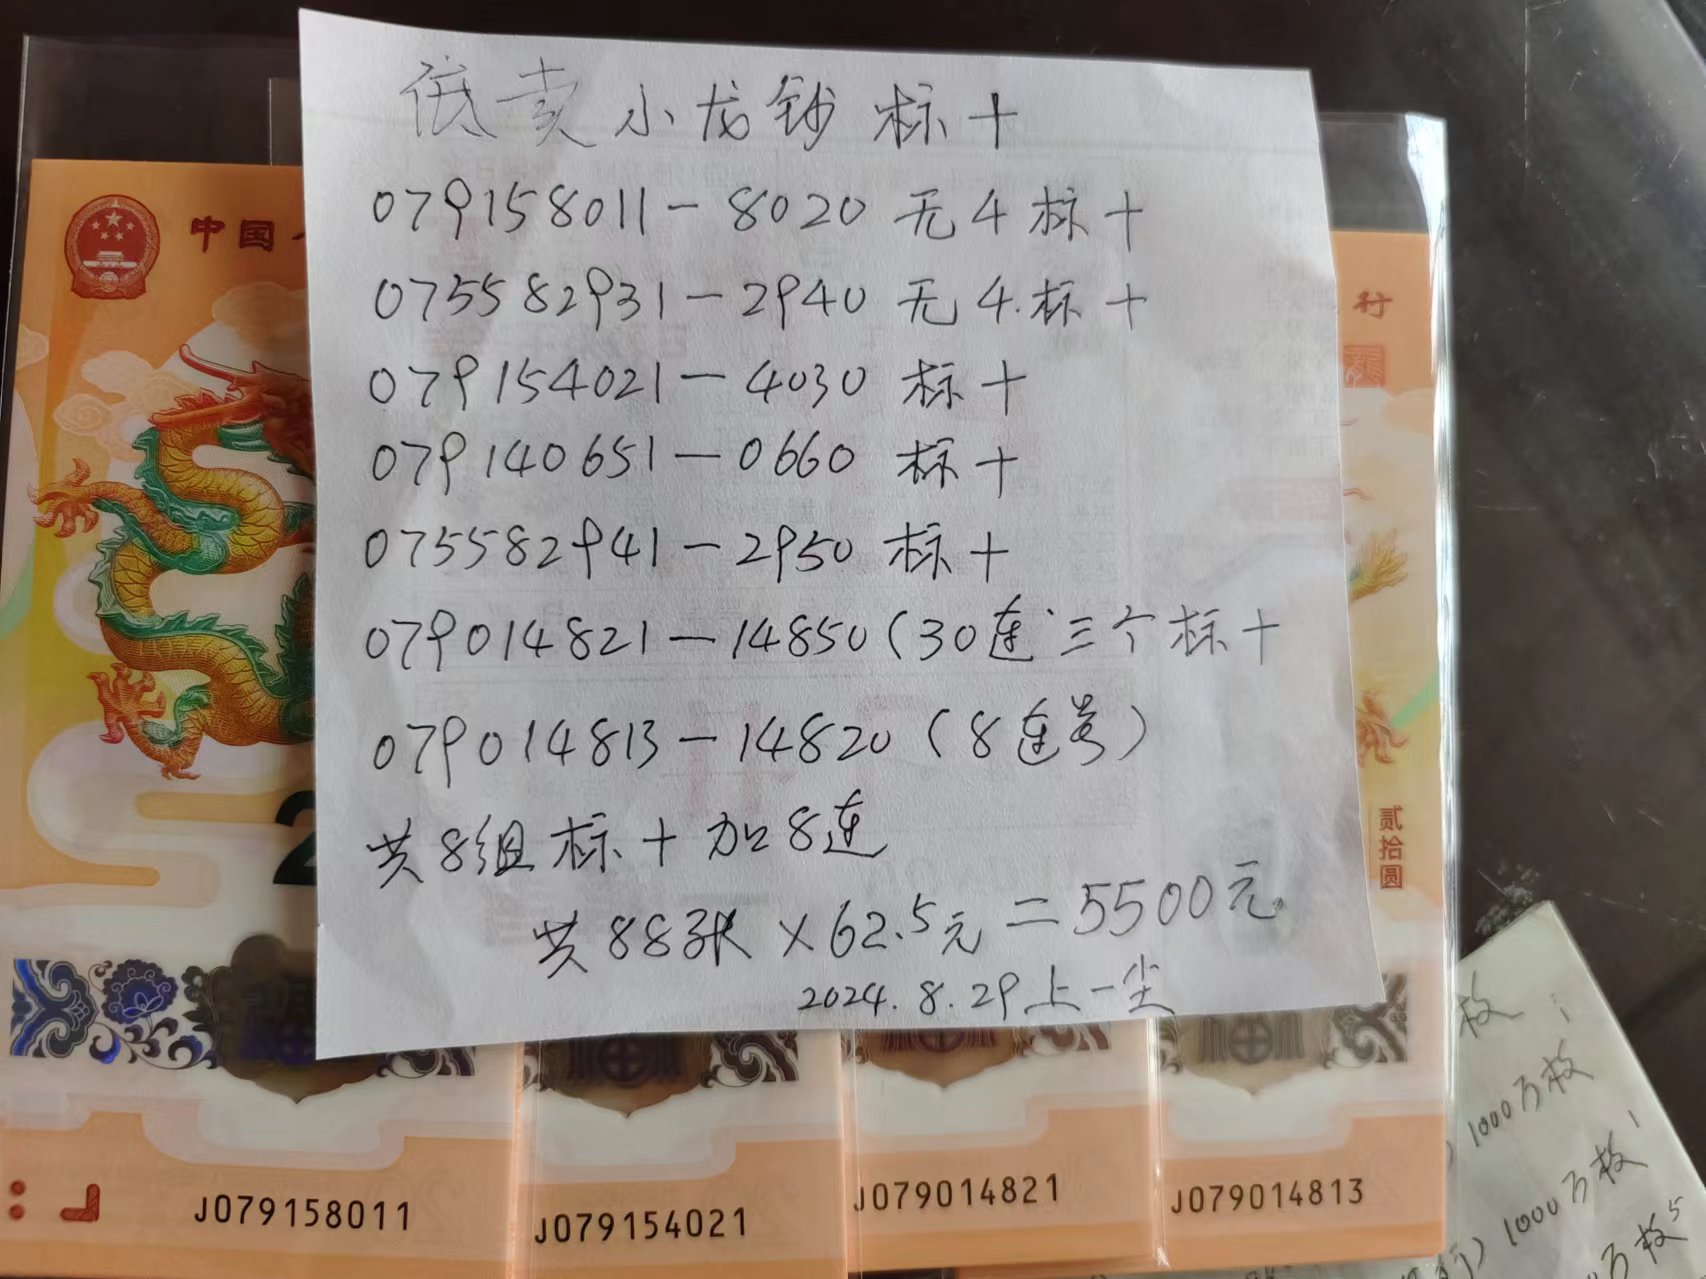 低卖小龙钞标十
079158011-8020 无4标十
075582931-2940 无4.标十
079154021-4030 标十
079140651-0660 标十
075582941-2950 标十
079014821-14850(30连 三个标十
079014813-14820(8连号)
共8组标十加8连
共88张×62.5元=5500元
2024.8.29上一尘
中国
行
贰拾圆
J079158011
J079154021
J079014821
J079014813
枚
1000万枚
)1000万枚
万枚